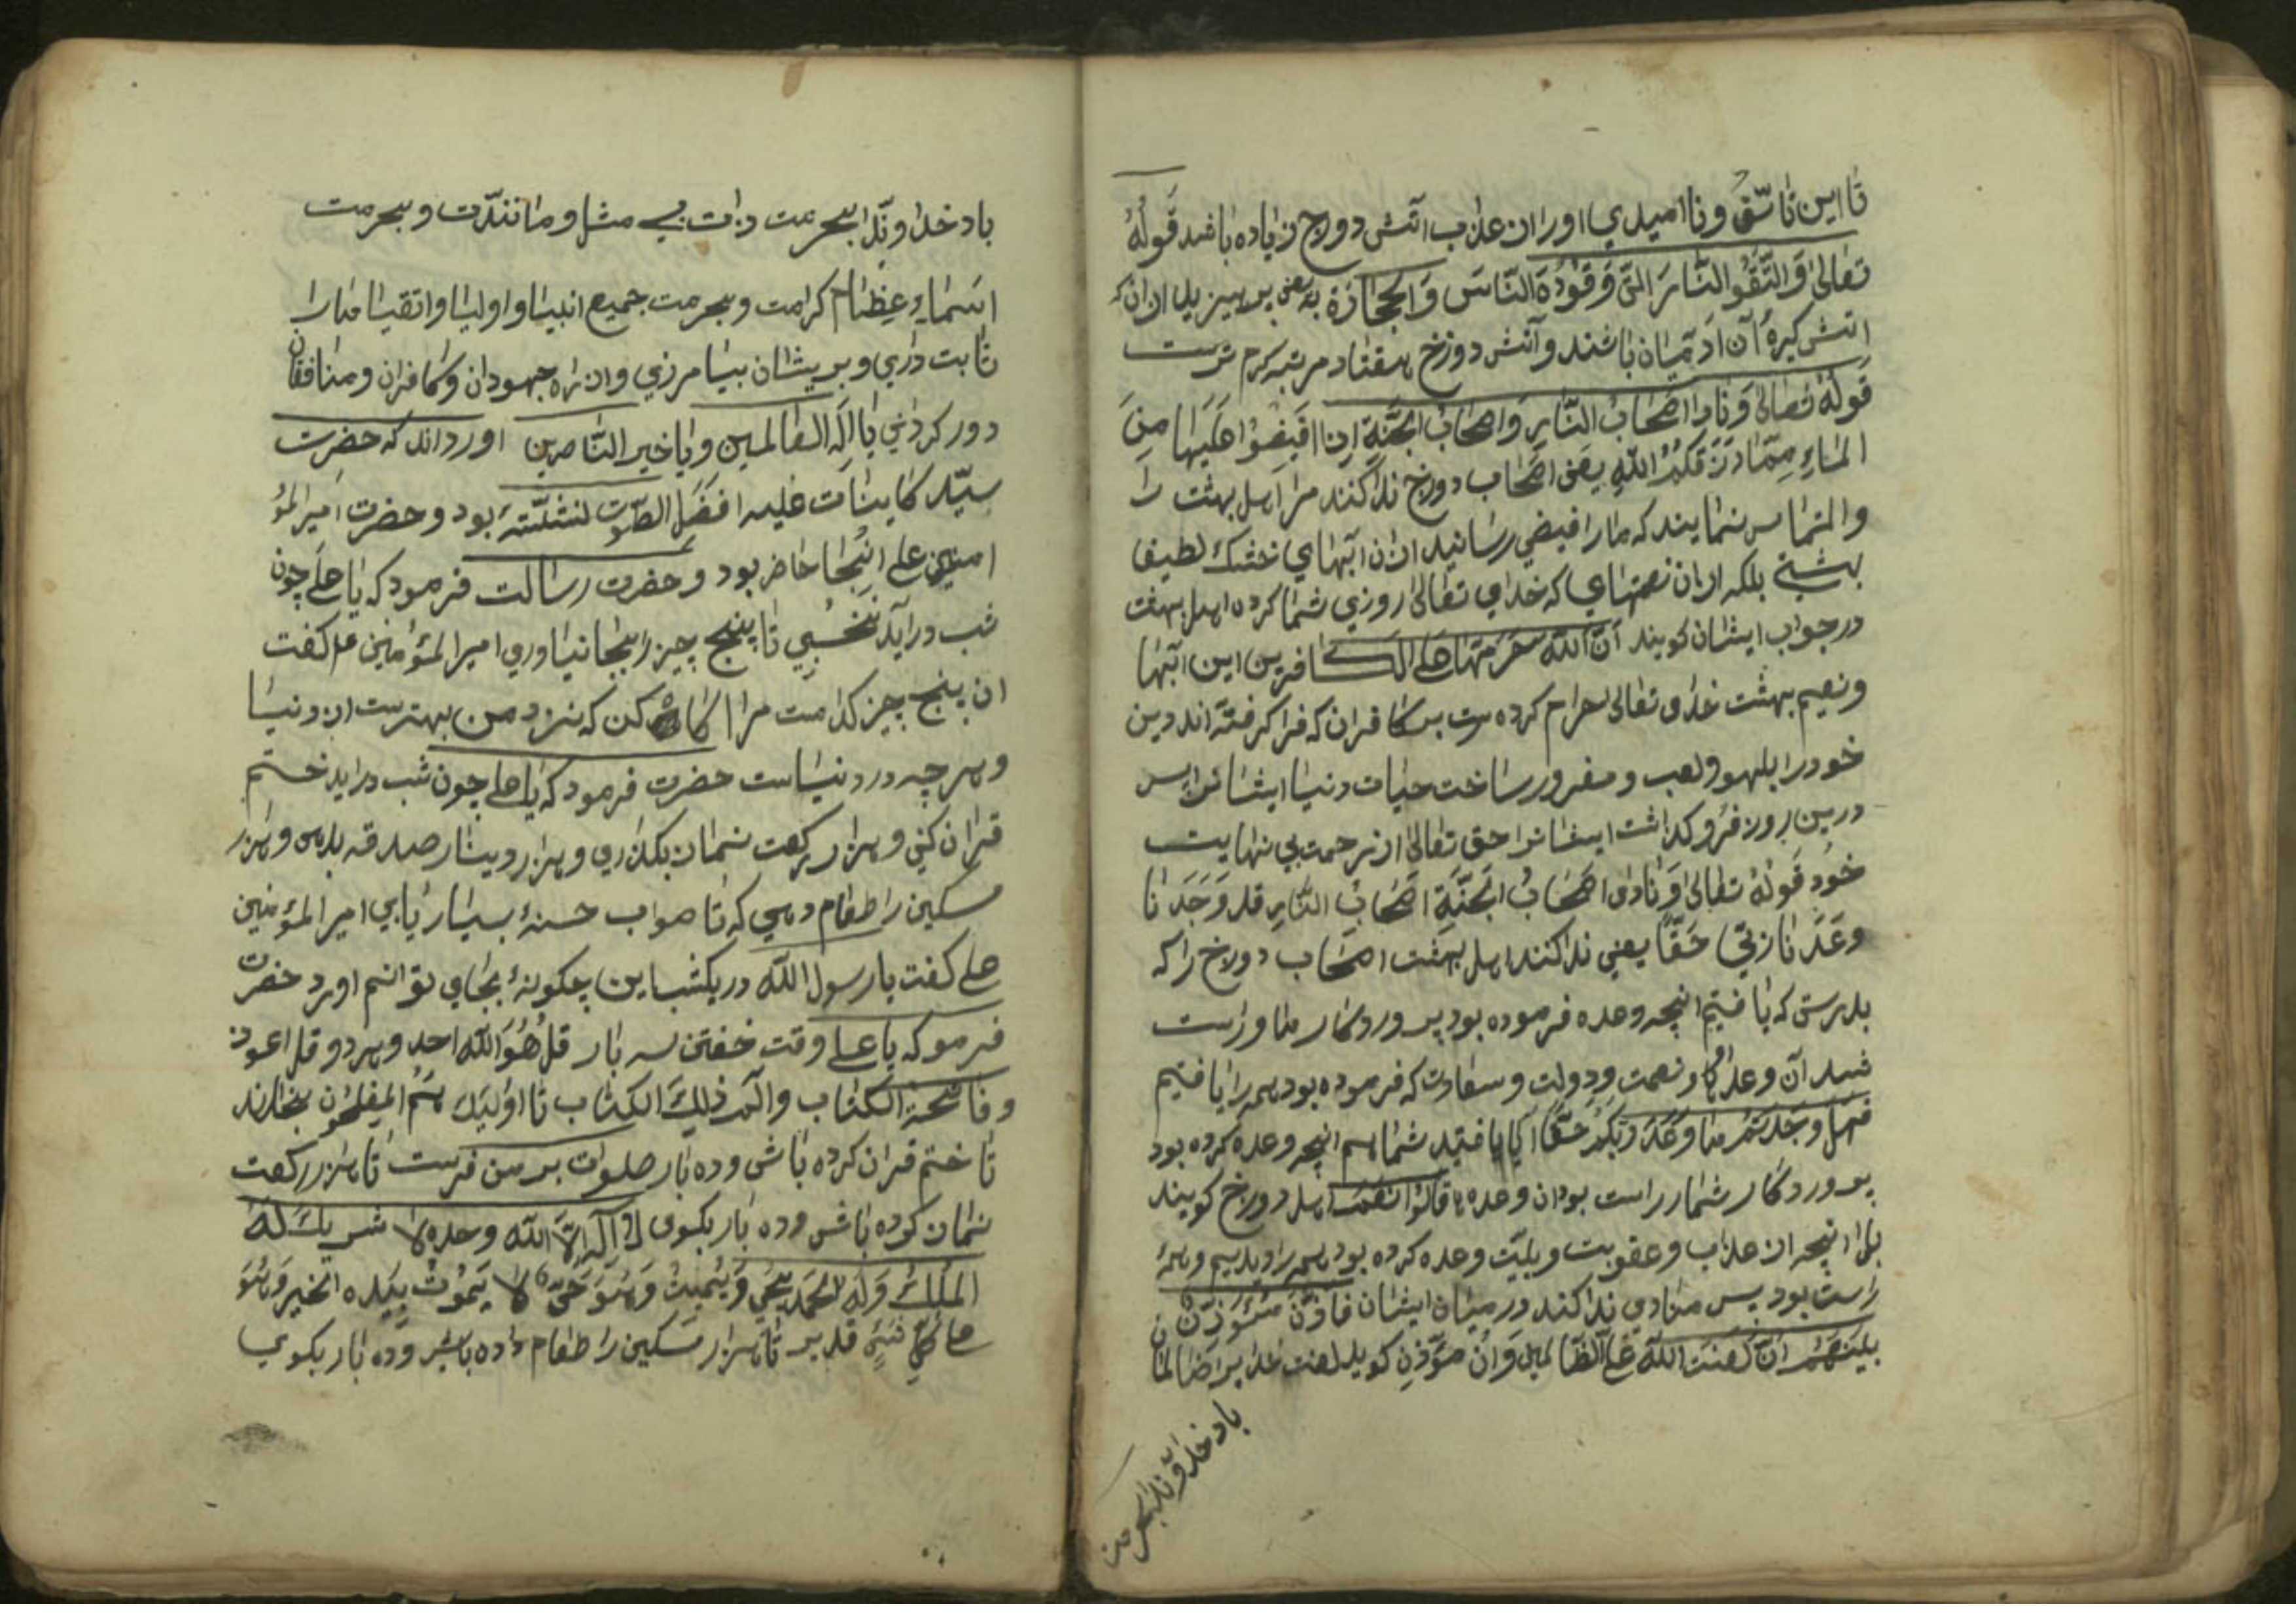 تا این تاسّف و ناامیدی او را از عذاب آتش دوزخ زیاده باشد قَولُهُ
تعالیٰ وَالتَّقُو النَّارَ الَّتِی وَقُوْدُهَا النَّاسُ وَالحِجَارَة یعنی بپرهیزید از ان که
اتش کیرهٔ آن ادمیان باشند و آتش دوزخ هفتاد مرتبه کرم ترست
قَولُهُ تَعَالیٰ وَنَادا اَصْحَابُ النَّارِ وَاصحَابُ الجَنَّةِ اِن اَفِیضُوا عَلَیْنَا مِنَ
المَاءِ مِمّا رَزَقَکُمُ اللّٰهِ یعنی اصحاب دوزخ ندا کنند مر اهل بهشت را
والتماس نمایند که ما را فیضی رسانید از ان آبهای خنک لطیف
بهشتی بلکه از ان نعمتهای که خدای تعالیٰ روزی شما کرده اهل بهشت
در جواب ایشان کویند اَنَّ اللّٰهَ حَرَّمَتهَا علی الکافرین این آبها
ونعیم بهشت خدای تعالی حرام کرده ست بر کافران که فرا کرفته اند دین
خود را بلهو ولعب و مغرور ساخت حیات دنیا ایشانرا پس
درین روز فرو کذاشت ایشانرا حق تعالیٰ از رحمت بی نهایت
خُود قَولهُ تعالیٰ وَنادی اَصْحَابُ الجَنَّةِ اَصْحَابُ النَّارِ قد وَجَدنَا
وعَدَنا رَبّی حَقًّا یعنی ندا کنند اهل بهشت اصحاب دوزخ را که
بدرستی که یافتیم انچه وعده فرموده بود پروردکار ما و راست
شد آن وعدها و نعمت و دولت و سعادت که فرموده بود همه را یافتیم
فهَل وجَدتُم مَا وَعَدَ رَبُّکُمْ حَقًّا ایا یافتید شما هم انچه وعده کرده بود
پروردکار شما راست بود ان وعدها قالُوا نَعَمْ اهل دوزخ کویند
بلی انچه از عذاب و عقوبت و بلیّت وعده کرده بود همه را دیدیم و همهٔ
راست بود پس منادی ندا کند در میان ایشان فَاَذَّنَ مُئَوَذِّنٌ
بَیْنَهُمْ اَنْ لَعْنَتَ اللّٰهِ عَلَی الظّالمین وَاَن مؤذن کوید لعنت خدا بر ظالمان
باد خداوندا بحرمت
باد خداوندا بحرمت ذات بی مثل و مانندت و بحرمت
اسْمَاءِ عِظَام کرامت و بحرمت جمیع انبیا و اولیا و اتقیا ما را
ثابت داری و بر یشان بیامرزی و از راه جهودان و کافران و منافقان
دور کردانی یا اِلٰهَ العالمین و یا خیر النّاصرین اورد اند که حضرت
سیّد کاینات علیه افضل الصّلوت نشسته بود و حضرت امیر المؤ
امنین علی انجا حاضر بود و حضرت رسالت فرمود که یا علی چون
شب در آید نخسبی تا پنج چیز را بجا نیاوری امیر المؤمنین علی کفت
ان پنج چیز کدامت مرا اکاه کن که نزد من بهترست از دنیا
و هر چه در دنیاست حضرت فرمود که یا علی چون شب دراید ختم
قران کنی و هزار رکعت نماز بکذاری و هزار دینار صدقه بدهی و هزار
مسکین را طعام دهی که تا صواب حسنهٔ بسیار یابی امیر المؤمنین
علی کفت یا رسول اللّٰه در یکشب این چکونهٔ بجای توانم اورد حضرت
فرمو که یا علی وقت خفتن سه بار قل هُوَ اللّٰه احد و هر دو قل اعوذ
و فاتحة الکتاب و المٓ ذلِكَ الکتاب تا اولئِك هُمُ المفلحون بخوانند
تا ختم قران کرده باشی و ده بار صلوات بر من فرست تا هزار رکعت
نماز کرده باشی و ده بار بکوی لا اِلٰهَ اِلَّا اللّٰه وحده لا شَریك لَهُ
المُلكُ وَلَهُ الحَمد یُحیی وَیُمیتُ وَهُوَ حَیٌّ لا یَمُوْتُ بِیَده الخیر وَهُوَ
علی کُلِّ شَئٍ قدیر تا هزار مسکین را طعام داده باشی و ده بار بکوی